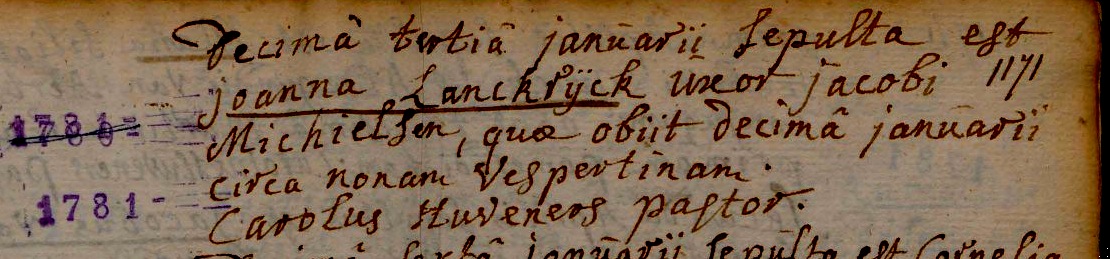 Decimâ tertiâ januarii sepulta est
joanna Lanckrijck uxor jacobi 1171
1780- Michielsen, quæ obiit decimâ januarii
circa nonam vespertinam.
1781- Carolus Huveners pastor.
januarii sepulta est Cornelia